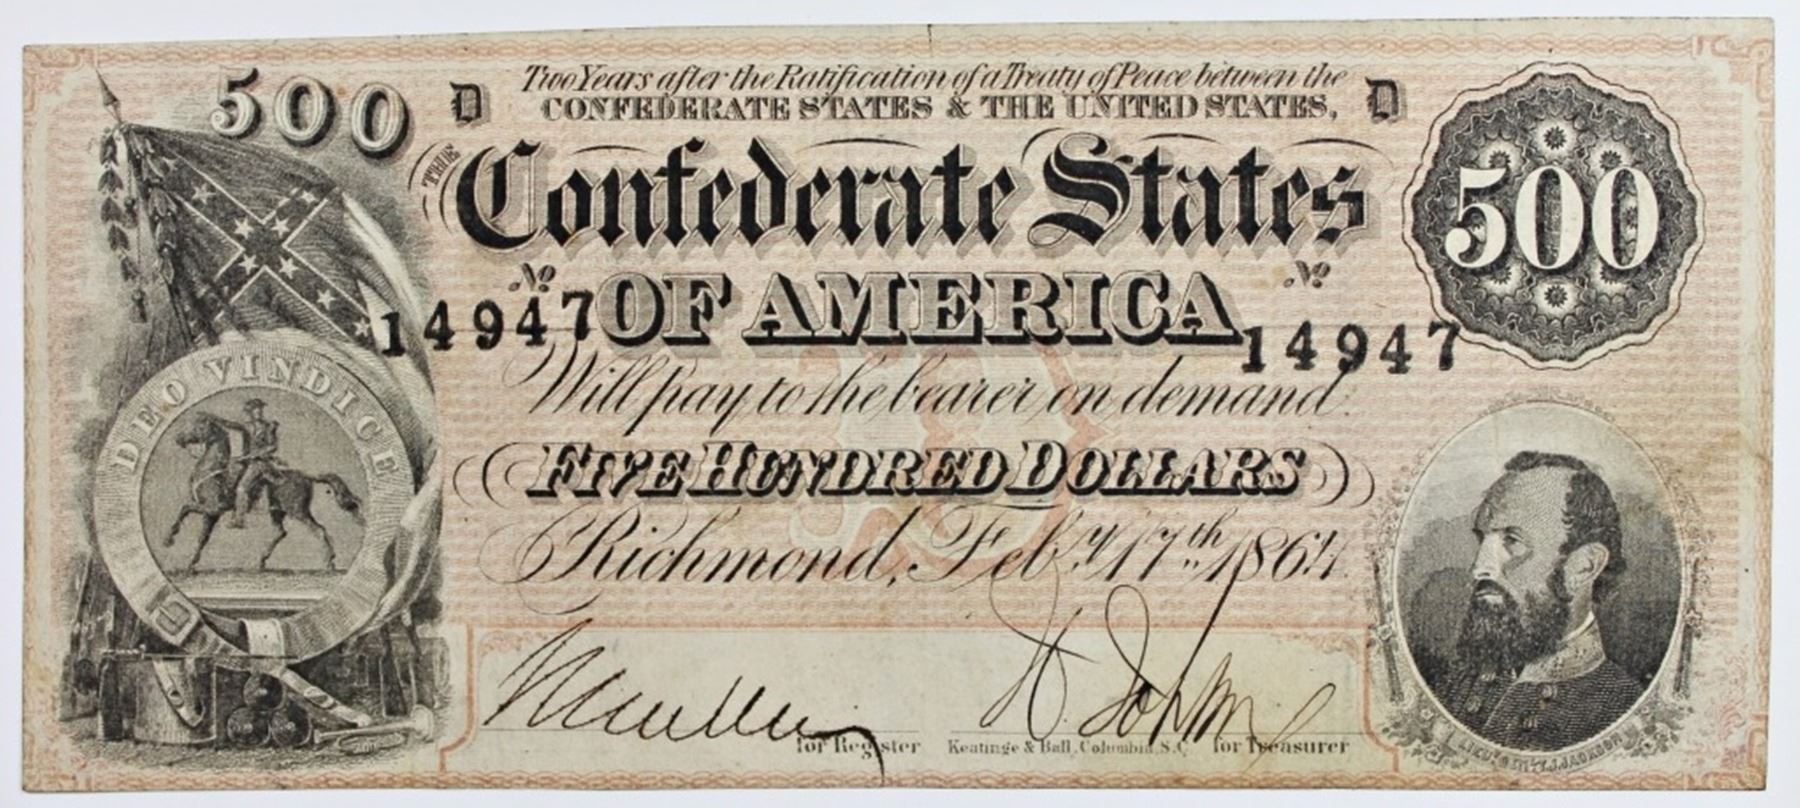 500
D Two Years after the Ratification of a Treaty of Peace between the D
CONFEDERATE STATES & THE UNITED STATES,
THE
Confederate States
500
No No
14947 OF AMERICA 14947
Will pay to the bearer on demand
FIVE HUNDRED DOLLARS
Richmond, Feby. 17th 1864.
DEO VINDICE
for Register Keatinge & Ball, Columbia, S.C. for Treasurer
LIEUT. GEN. T. J. JACKSON